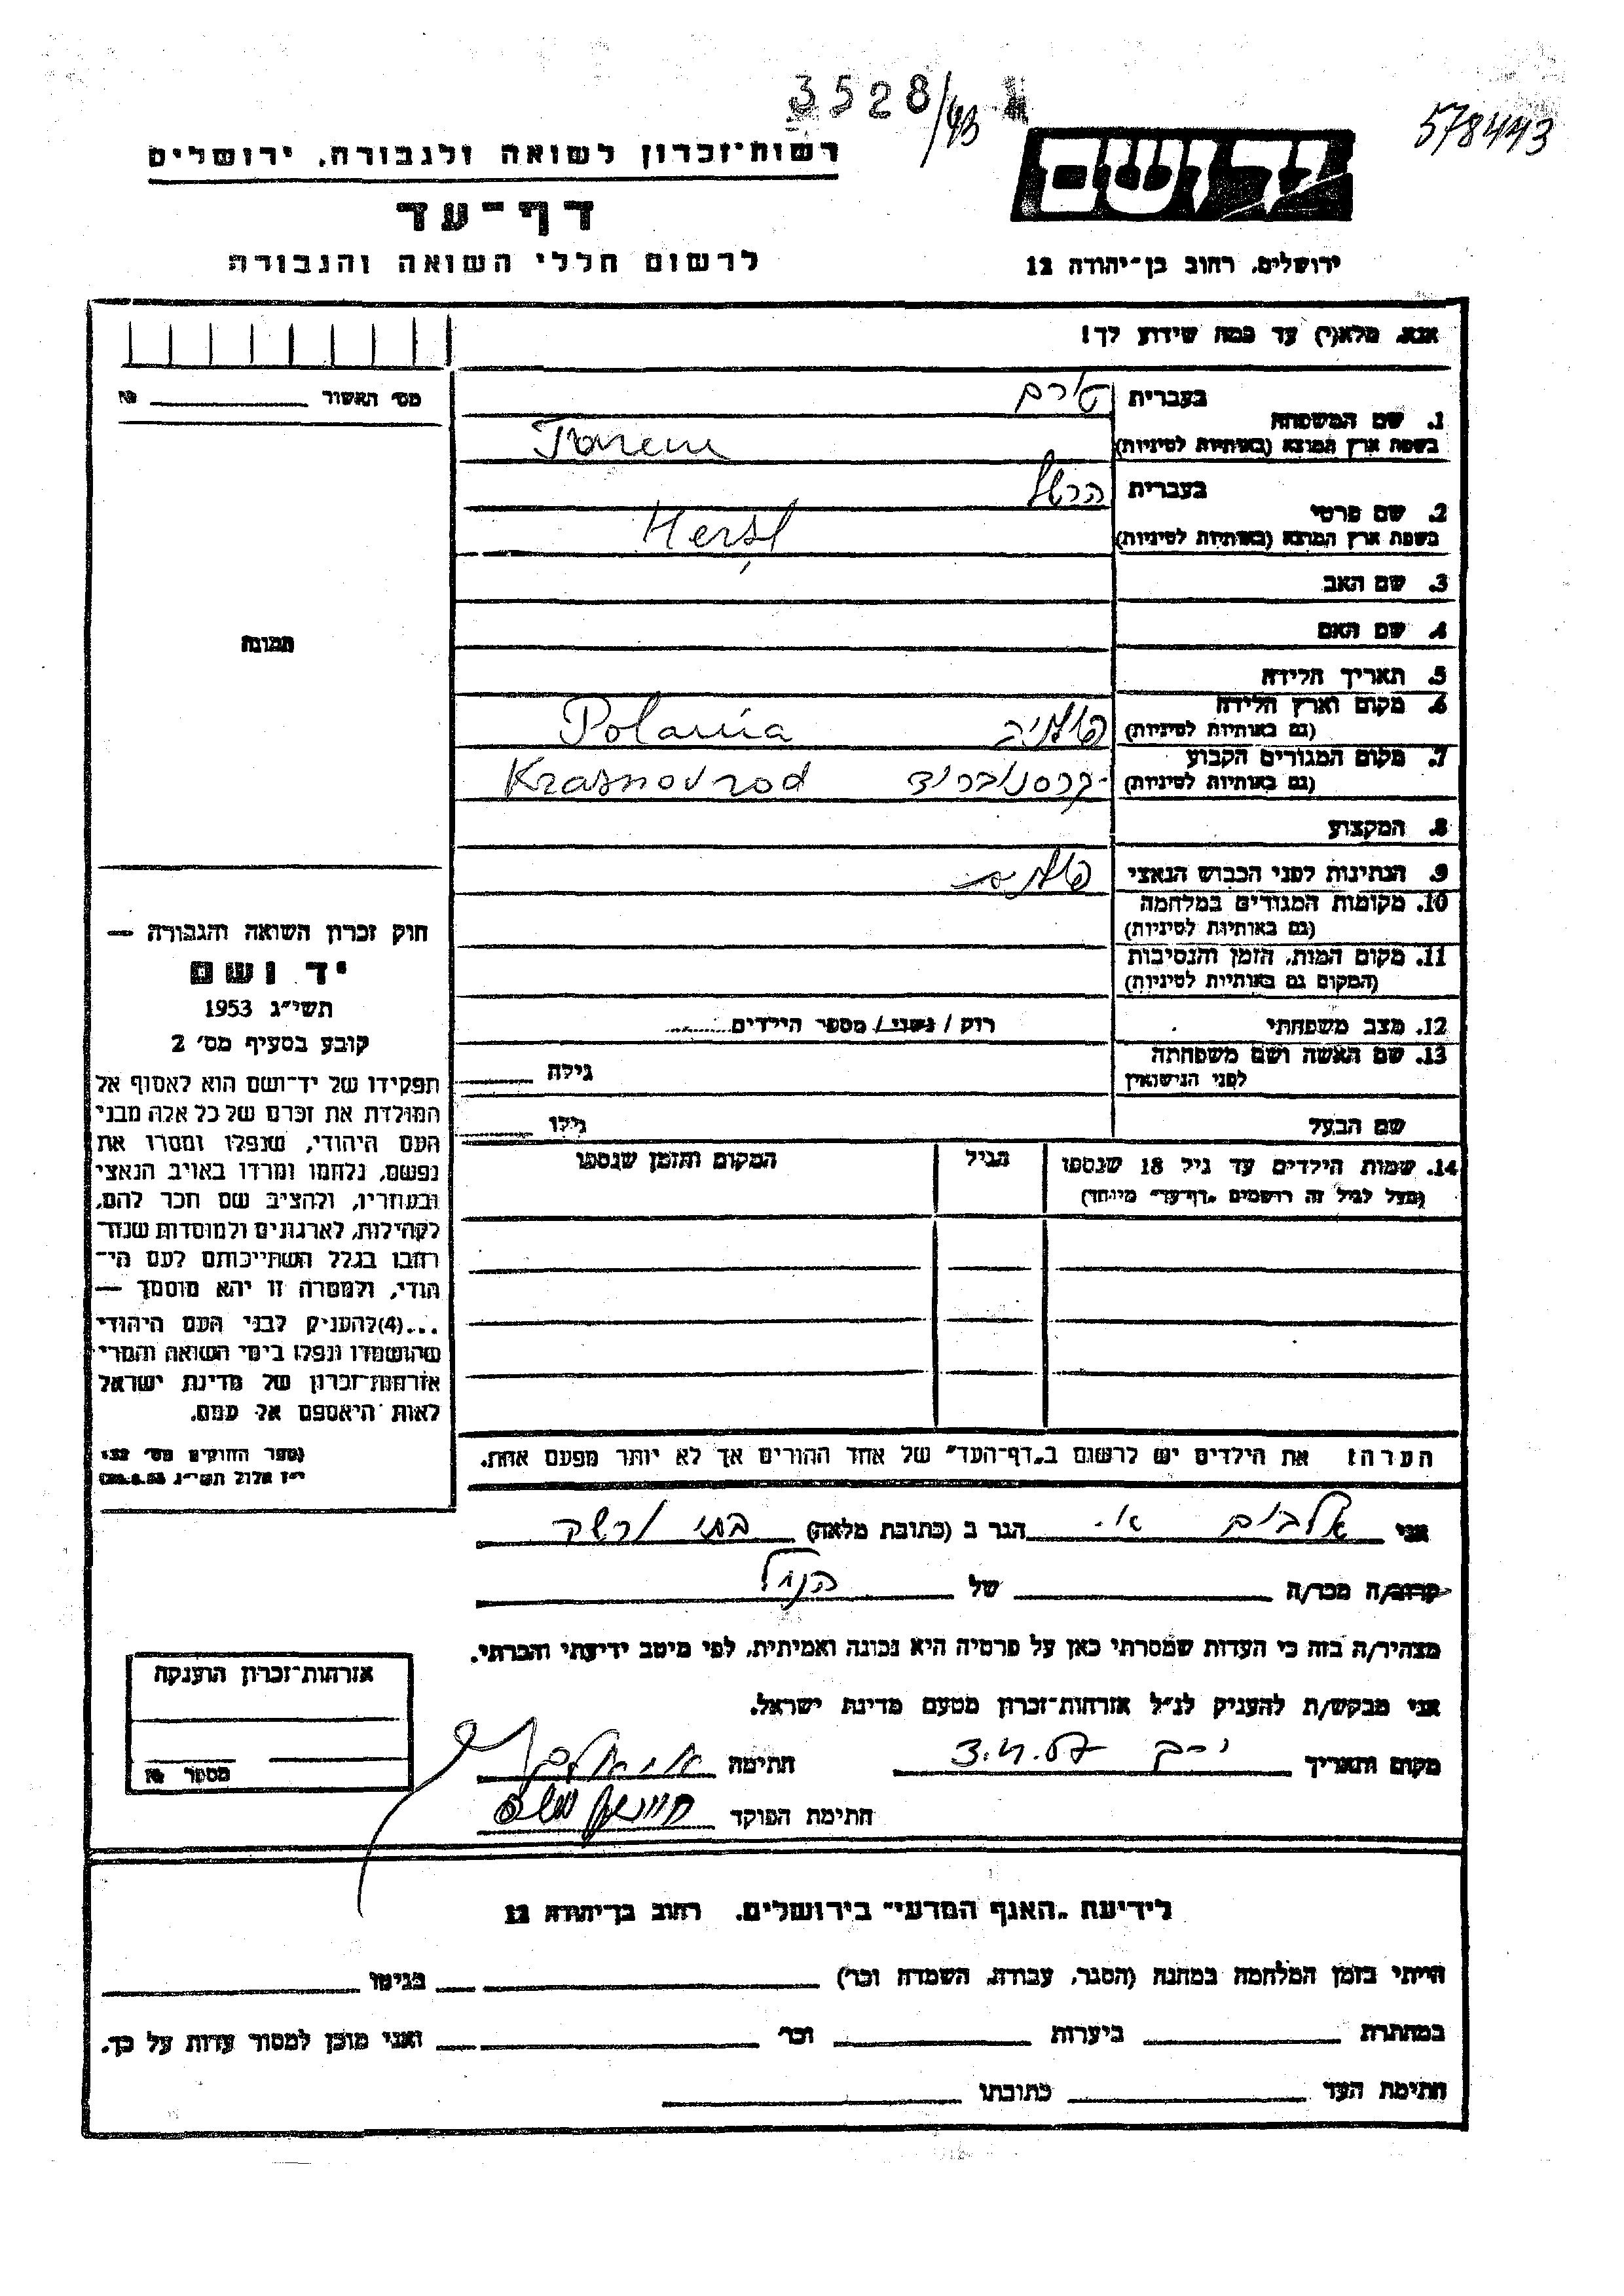 3528/43
578443
יד ושם
רשות־זכרון לשואה ולגבורה, ירושלים
דף־עד
לרשום חללי השואה והגבורה
ירושלים, רחוב בן־יהודה 12
אנא, מלא(י) עד כמה שידוע לך!
מס׳ האשור № 
1. שם המשפחה
בעברית
בשפת ארץ המוצא (באותיות לטיניות)
2. שם פרטי
בעברית הרשל
בשפת ארץ המוצא (באותיות לטיניות) Hersl
3. שם האב
4. שם האם
5. תאריך הלידה
6. מקום וארץ הלידה
(גם באותיות לטיניות) פולניה Polania
7. מקום המגורים הקבוע
(גם באותיות לטיניות) קרסנובריד Krasnovrod
8. המקצוע
9. הנתינות לפני הכבוש הנאצי
10. מקומות המגורים במלחמה
(גם באותיות לטיניות)
11. מקום המות, הזמן והנסיבות
(המקום גם באותיות לטיניות)
12. מצב משפחתי רוק / נשוי / מספר הילדים
13. שם האשה ושם משפחתה
לפני הנישואין גילה
שם הבעל גילו
14. שמות הילדים עד גיל 18 שנספו הגיל המקום והזמן שנספו
(מעל לגיל זה רושמים „דף־עד״ מיוחד)
הערה: את הילדים יש לרשום ב„דף־העד״ של אחד ההורים אך לא יותר מפעם אחת.
תמונה
חוק זכרון השואה והגבורה —
יד ושם
תשי״ג 1953
קובע בסעיף מס׳ 2
תפקידו של יד־ושם הוא לאסוף אל
המולדת את זכרם של כל אלה מבני
העם היהודי, שנפלו ומסרו את
נפשם, נלחמו ומרדו באויב הנאצי
ובעוזריו, ולהציב שם וזכר להם,
לקהילות, לארגונים ולמוסדות שנח־
רבו בגלל השתייכותם לעם הי־
הודי, ולמטרה זו יהא מוסמך —
...(4)להעניק לבני העם היהודי
שהושמדו ונפלו בימי השואה והמרי
אזרחות־זכרון של מדינת ישראל
לאות היאספם אל עמם.
(ספר החוקים מס׳ 132
י״ז אלול תשי״ג 28.8.53)
אני הגר ב (כתובת מלאה)
קרוב/ה מכר/ה של הנ״ל
מצהיר/ה בזה כי העדות שמסרתי כאן על פרטיה היא נכונה ואמיתית, לפי מיטב ידיעתי והכרתי.
אני מבקש/ת להעניק לנ״ל אזרחות־זכרון מטעם מדינת ישראל.
מקום ותאריך חתימה
חתימת הפוקד
אזרחות־זכרון הוענקה
מספר №
לידיעת „האגף המדעי״ בירושלים, רחוב בן־יהודה 12
הייתי בזמן המלחמה במחנה (הסגר, עבודה, השמדה וכר׳) בגיטו
במחתרת ביערות וכר׳ ואני מוכן למסור עדות על כך.
חתימת העד כתובתו